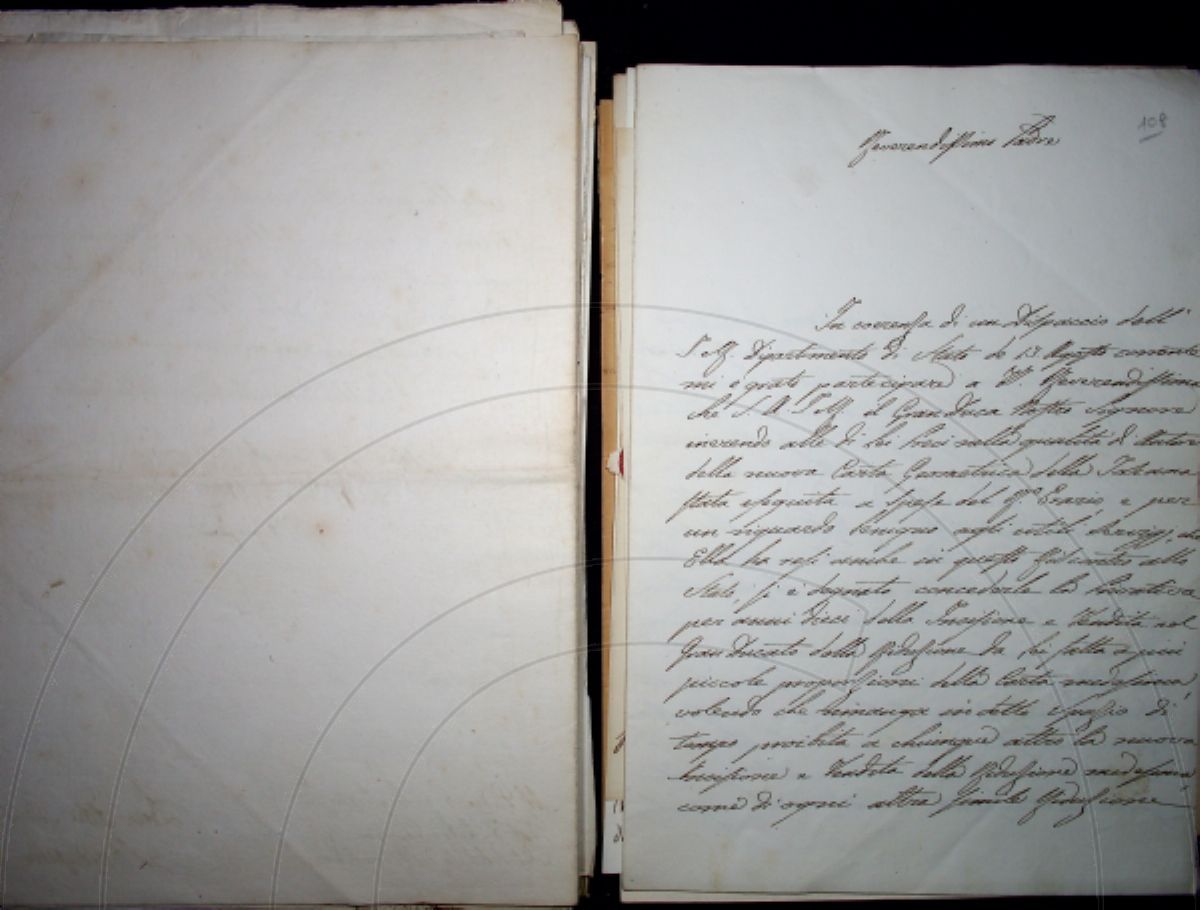 108
Reverendissimo Padre
In coerenza di un Dispaccio dell'
I. e R. Dipartimento di Stato de 13 Agosto corrente
mi è grato partecipare a V. Reverendissima
che S. A. I. e R. il Gran Duca Nostro Signore
inerendo alle di Lei Preci nella qualità d'Autore
della nuova Carta Geometrica della Toscana
stata eseguita a spese del R.º Erario e per
un riguardo benigno agli utili servizj, che
Ella ha resi anche in questo Riscontro allo
Stato, si è degnato concederle la Privativa
per anni dieci della Incisione e Vendita nel
Gran Ducato della Riduzione da Lei fatta a più
piccole proporzioni della Carta medesima,
volendo che rimanga in detto spazio di
tempo proibita a chiunque altro la nuova
Incisione e Vendita della Riduzione medesima
come di ogni altra simile Riduzione